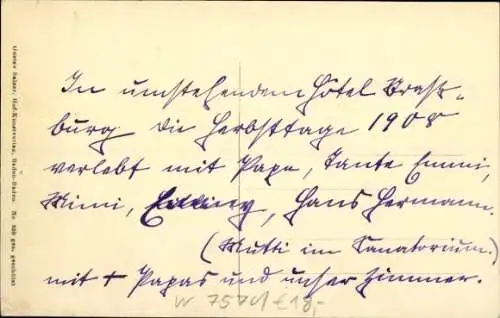 In umstehendem Hôtel Straß-
burg die Herbsttage 1908
verlebt mit Papa, Tante Emmi,
Mimi, Hans Hermann.
(Mutti im Sanatorium.)
mit + Papas und unser Zimmer.
W 757 € 18,-
Gustav Salzer, Hof-Kunstverlag, Baden-Baden No. ges. geschützt